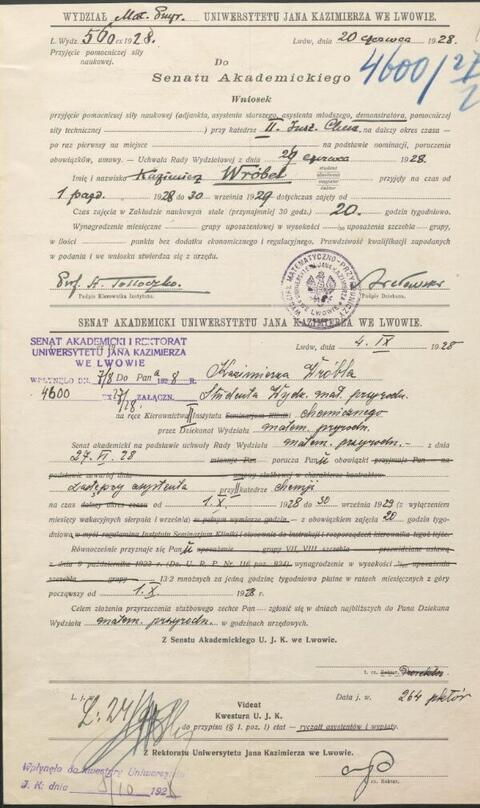 WYDZIAŁ Mat. Przyr. UNIWERSYTETU JANA KAZIMIERZA WE LWOWIE.
L. Wydz. 560 ex 1928. Lwów, dnia 20 czerwca 1928.
Przyjęcie pomocniczej siły naukowej.
Do
Senatu Akademickiego
4600/27
Wniosek
przyjęcie pomocniczej siły naukowej (adjunkta, asystenta starszego, asystenta młodszego, demonstratora, pomocniczej
siły technicznej) przy katedrze II. Inst. Chem. na dalszy okres czasu —
po raz pierwszy na miejsce na podstawie nominacji, poruczenia
obowiązków, umowy. — Uchwała Rady Wydziałowej z dnia czerwca 1928.
Imię i nazwisko Kazimierz Wróbel przyjęty na czas od
student
1 paźd. 1928 do 30 września 1929 dotychczas zajęty od
Czas zajęcia w Zakładzie naukowym stale (przynajmniej 30 godz.) 20. godzin tygodniowo.
Wynagrodzenie miesięczne — grupy uposażenowej w wysokości — uposażenia szczebla — grupy,
w ilości punktów bez dodatku ekonomicznego i regulacyjnego. Prawdziwość kwalifikacyj zapodanych
w podaniu i we wniosku stwierdza się z urzędu.
Prof. St. Tołłoczko
Podpis Kierownika Instytutu. Podpis Dziekana.
WYDZIAŁ MATEMATYCZNO-PRZYRODNICZY
SENAT AKADEMICKI UNIWERSYTETU JANA KAZIMIERZA WE LWOWIE.
SENAT AKADEMICKI I REKTORAT
UNIWERSYTETU JANA KAZIMIERZA
WE LWOWIE
Lwów, dnia 4. IX 1928
WPŁYNĘŁO DN. 7/8 1928 R.
Do Pana Kazimierza Wróbla
4600 EX 27/28. ZAŁĄCZN.
Studenta Wydz. mat. przyrodn.
na ręce Kierownictwa II Instytutu Seminarjum Kliniki chemicznego
przez Dziekanat Wydziału matem. przyrodn.
Senat akademicki na podstawie uchwały Rady Wydziału matem. przyrodn. — z dnia
27. VI. 28 mianuje Pan — porucza Panu obowiązki przyjmuje Pan — na
podstawie zawartej dnia umowy służbowej w charakterze kontraktow.
Zastępcy asystenta przy II katedrze chemji
na czas dalszy okres czasu od 1. X. 1928 do 30 września 1929 (z wyłączeniem
miesięcy wakacyjnych sierpnia i września) w pełnym wymiarze godzin — z obowiązkiem zajęcia 20 godzin tygodniowo,
w myśl regulaminu Instytutu Seminarjum Kliniki i stosownie do instrukcji i rozporządzeń kierownika tegoż tejże.
Równocześnie przyznaje się Panu uposażenie grupy VII, VIII szczebla przewidziane ustawą
z dnia 9 października 1923 r. (Dz. U. R. P. Nr 116 poz. 924) wynagrodzenie w wysokości uposażenia
szczebla grupy 13·2 mnożnych za jedną godzinę tygodniowo płatne w ratach miesięcznych z góry
począwszy od 1. X 1928 r.
Celem złożenia przyrzeczenia służbowego zechce Pan — zgłosić się w dniach najbliższych do Pana Dziekana
Wydziału matem. przyrodn. — w godzinach urzędowych.
Z Senatu Akademickiego U. J. K. we Lwowie.
t. cz. Rektor. Prorektor
Data j. w.
Videat
Kwestura U. J. K.
do przypisu (§ 1. poz. 1) etat — ryczałt asystentów i wypłaty.
Z Rektoratu Uniwersytetu Jana Kazimierza we Lwowie.
t. cz. Rektor.
Wpłynęło do Kwestury Uniwersytetu
J. K. dnia /10 192